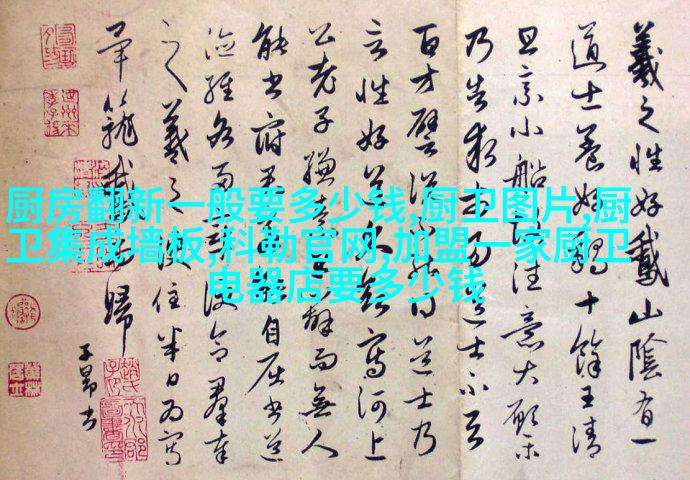 厨房翻新一般要多少钱,厨卫图片,厨
卫集成墙板,科勒官网,加盟一家厨卫
电器店要多少钱
羲之性好鵞山陰有一
道士養好鵝十餘王清
旦乘小船往意大願樂
乃告求市易道士不
百方譬說不能得道士乃
言性好道久欲寫河上
公老子縑素早辦而無人
能書府君若能自屈書道
德經各兩章便合羣奉
之羲之便住半日為寫
畢籠鵞以歸
子昂書